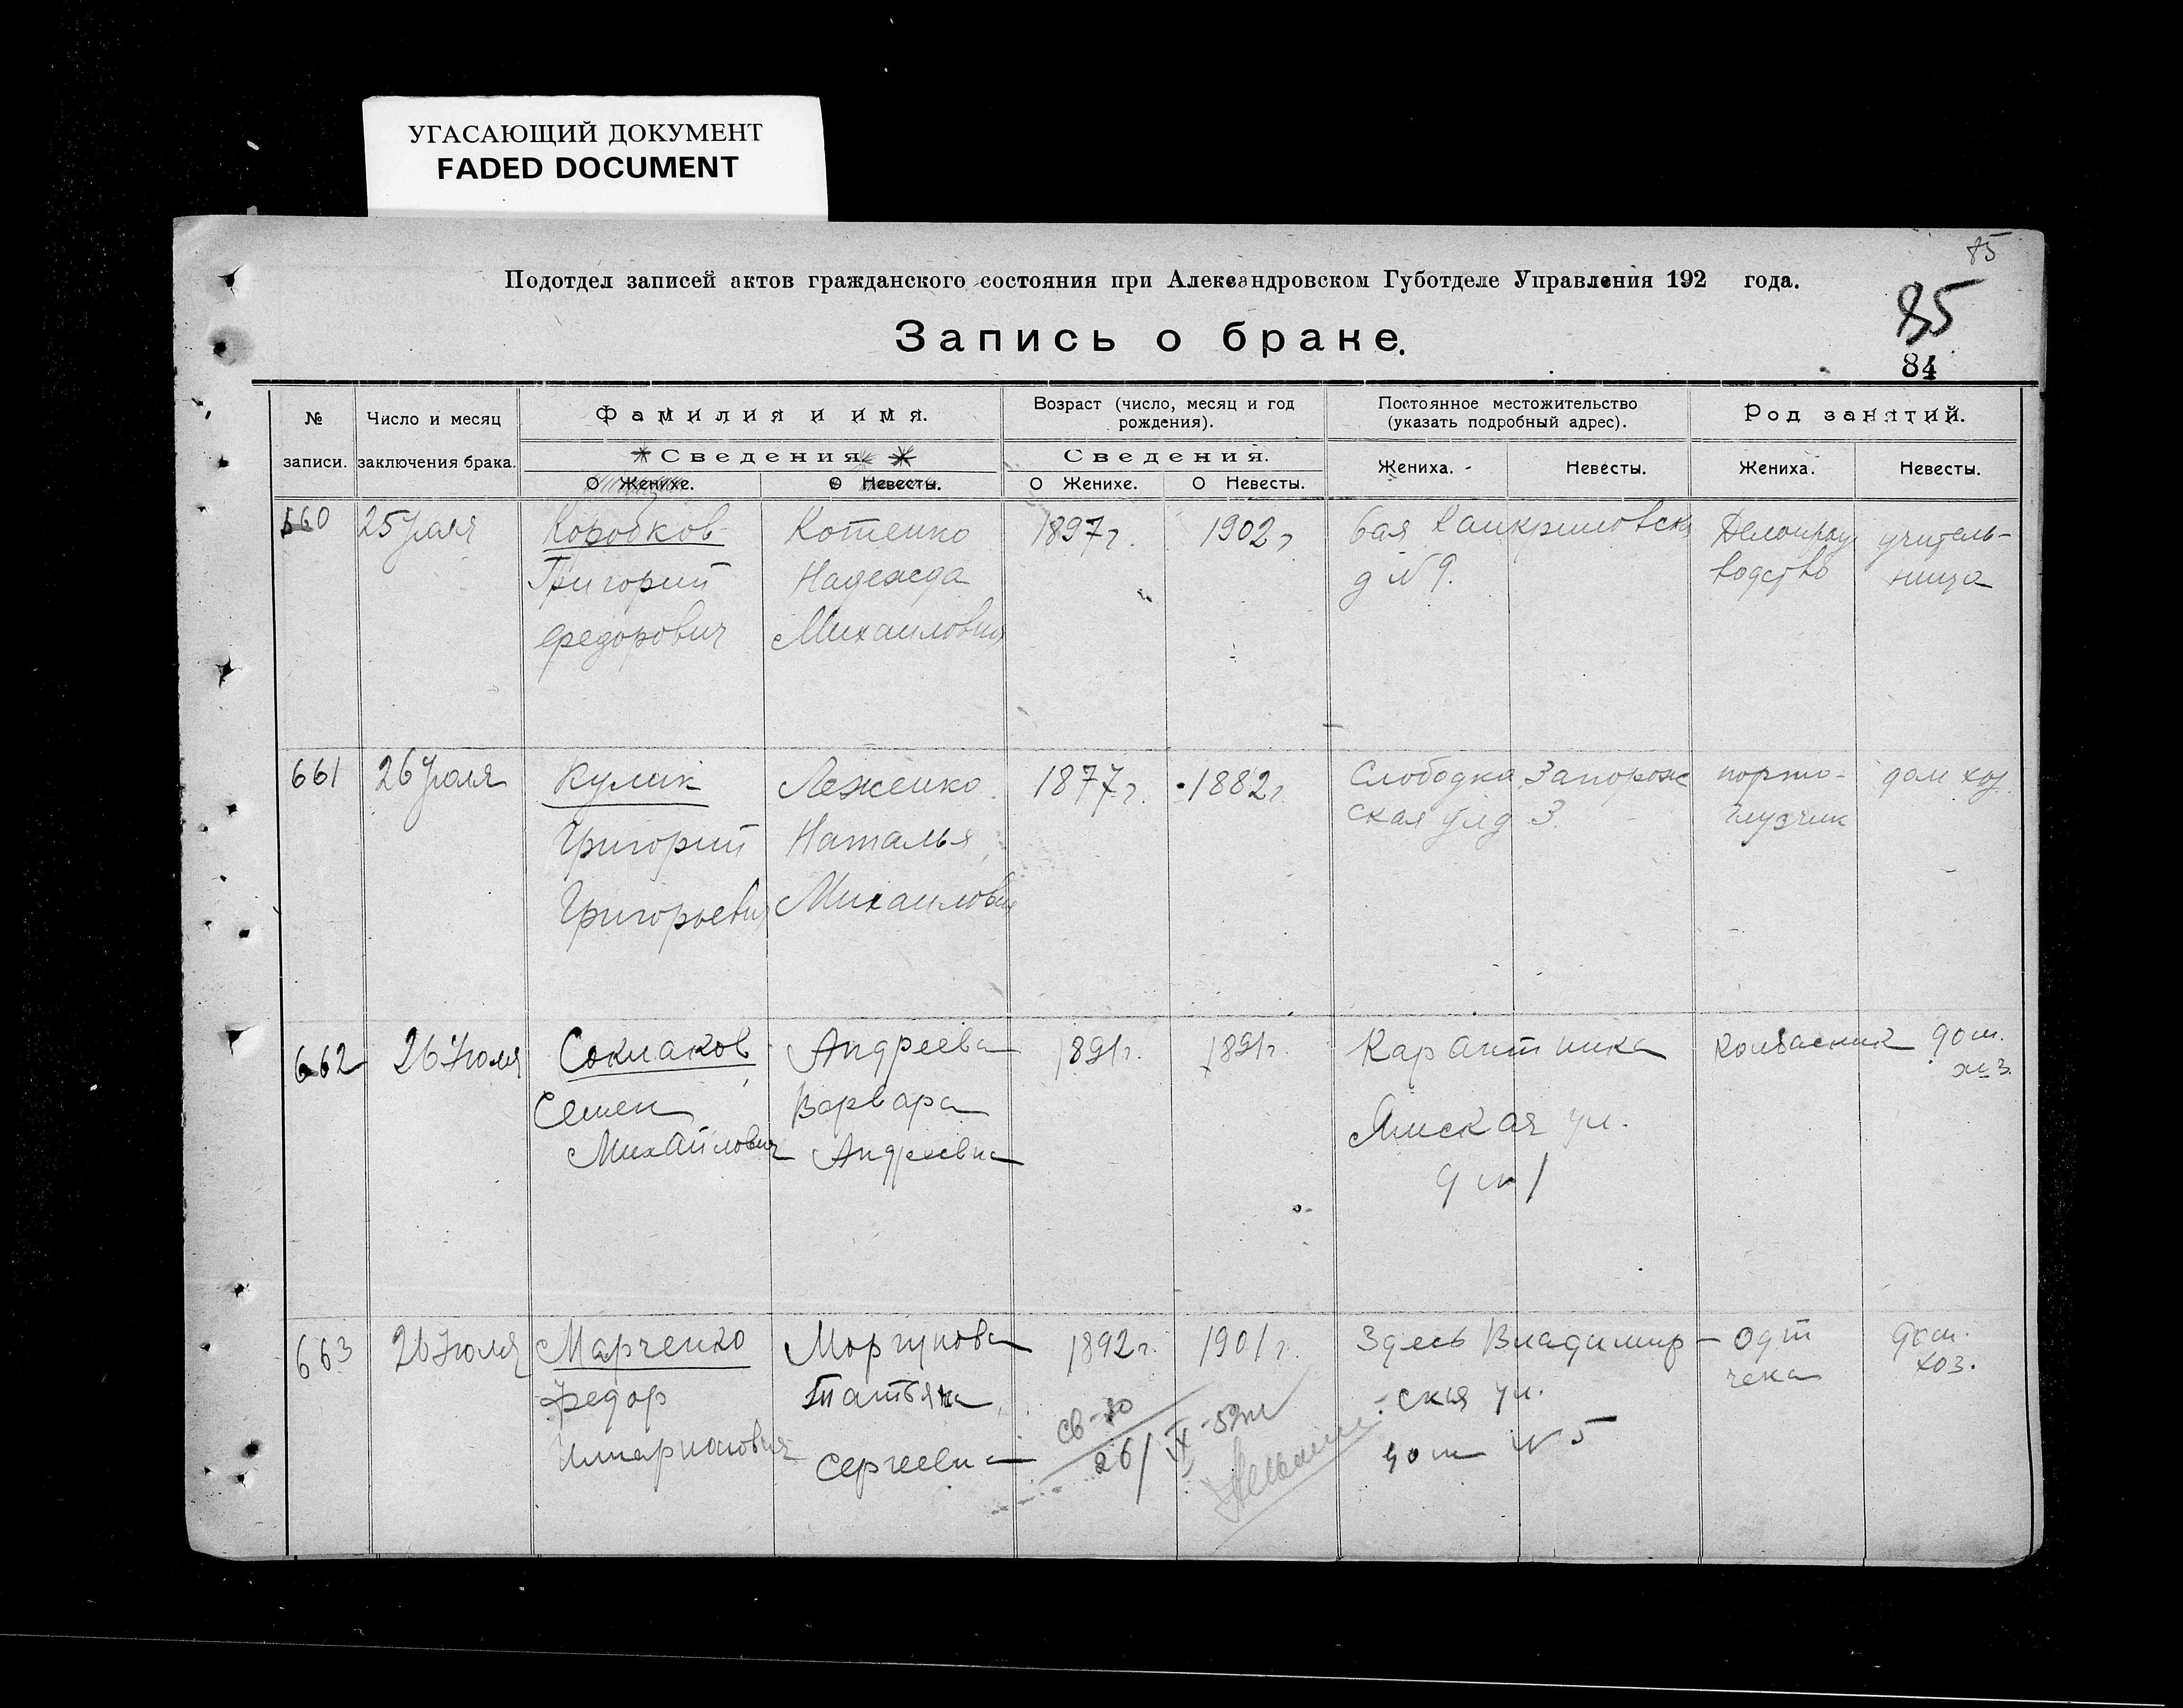 УГАСАЮЩИЙ ДОКУМЕНТ
FADED DOCUMENT
85
Подотдел записей актов гражданского состояния при Александровском Губотделе Управления 192 года.
85
Запись о браке.
84
№ записи.
Число и месяц заключения брака.
Фамилия и имя.
Сведения
О Женихе.
О Невесты.
Возраст (число, месяц и год рождения).
Сведения.
О Женихе.
О Невесты.
Постоянное местожительство (указать подробный адрес).
Жениха.
Невесты.
Род занятий.
Жениха.
Невесты.
660
25 Июля
Коробков
Григорий
Федорович
Котенко
Надежда
Михайловна
1897 г.
1902 г
д № 9.
Делопроизводство
учитель-
ница
661
26 Июля
Кулик
Григорий
Григорьевич
Леженко
Наталья
Михайловна
1877 г.
1882 г
Слободка Запорож
ская ул д 3.
дом хоз.
662
26 Июля
Соклаков
Семен
Михайлович
Андреева
Варвара
Андреевна
1891 г.
1891 г
Карантинка
Ямская ул.
д № 1
Колбасник
дом.
хоз.
663
26 Июля
Марченко
Федор
Илларионович
Моргунова
Татьяна
Сергеевна
1892 г.
1901 г.
Здесь Владимир-
ская ул.
дом № 5
чека
дом.
хоз.
св-во
26/IX-52 г